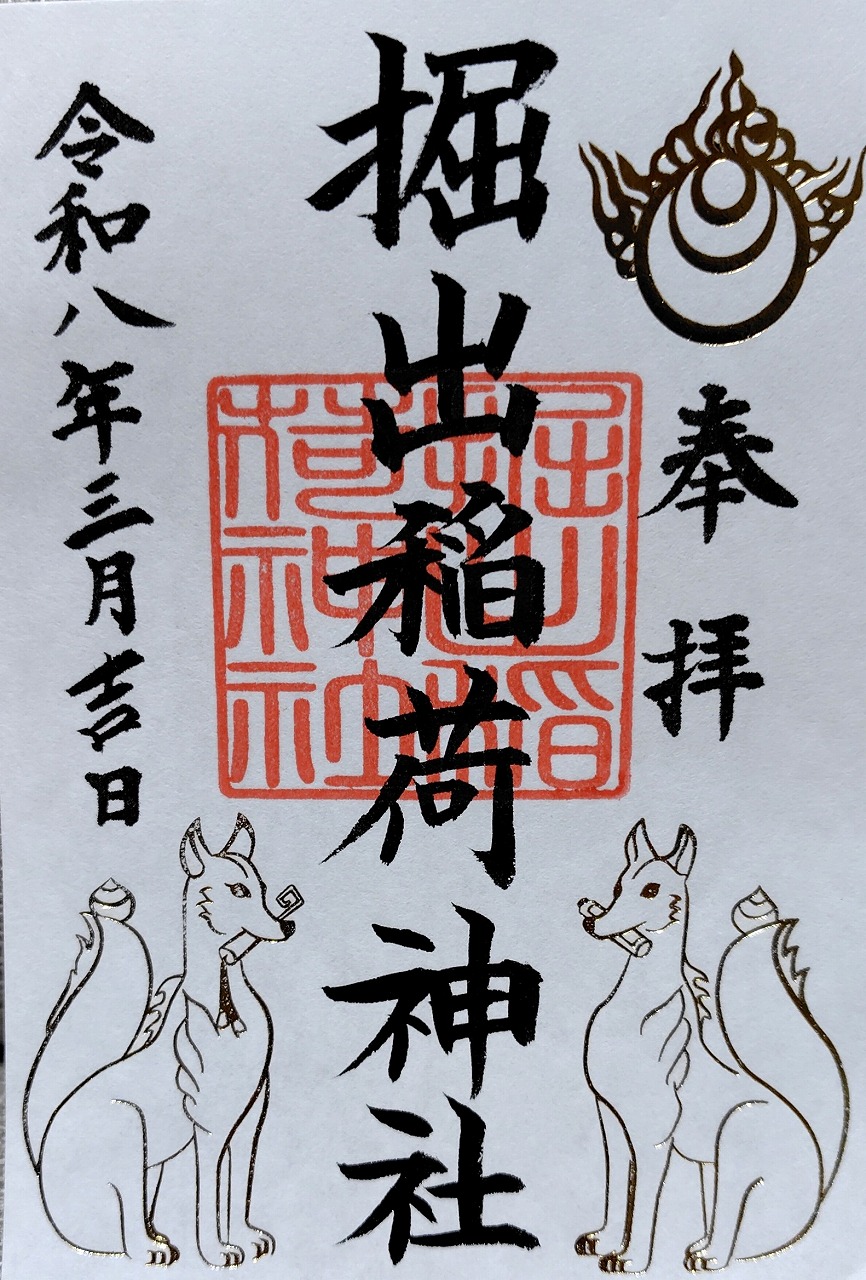 奉拝
掘出稲荷神社
堀出稲荷神社
令和八年三月吉日